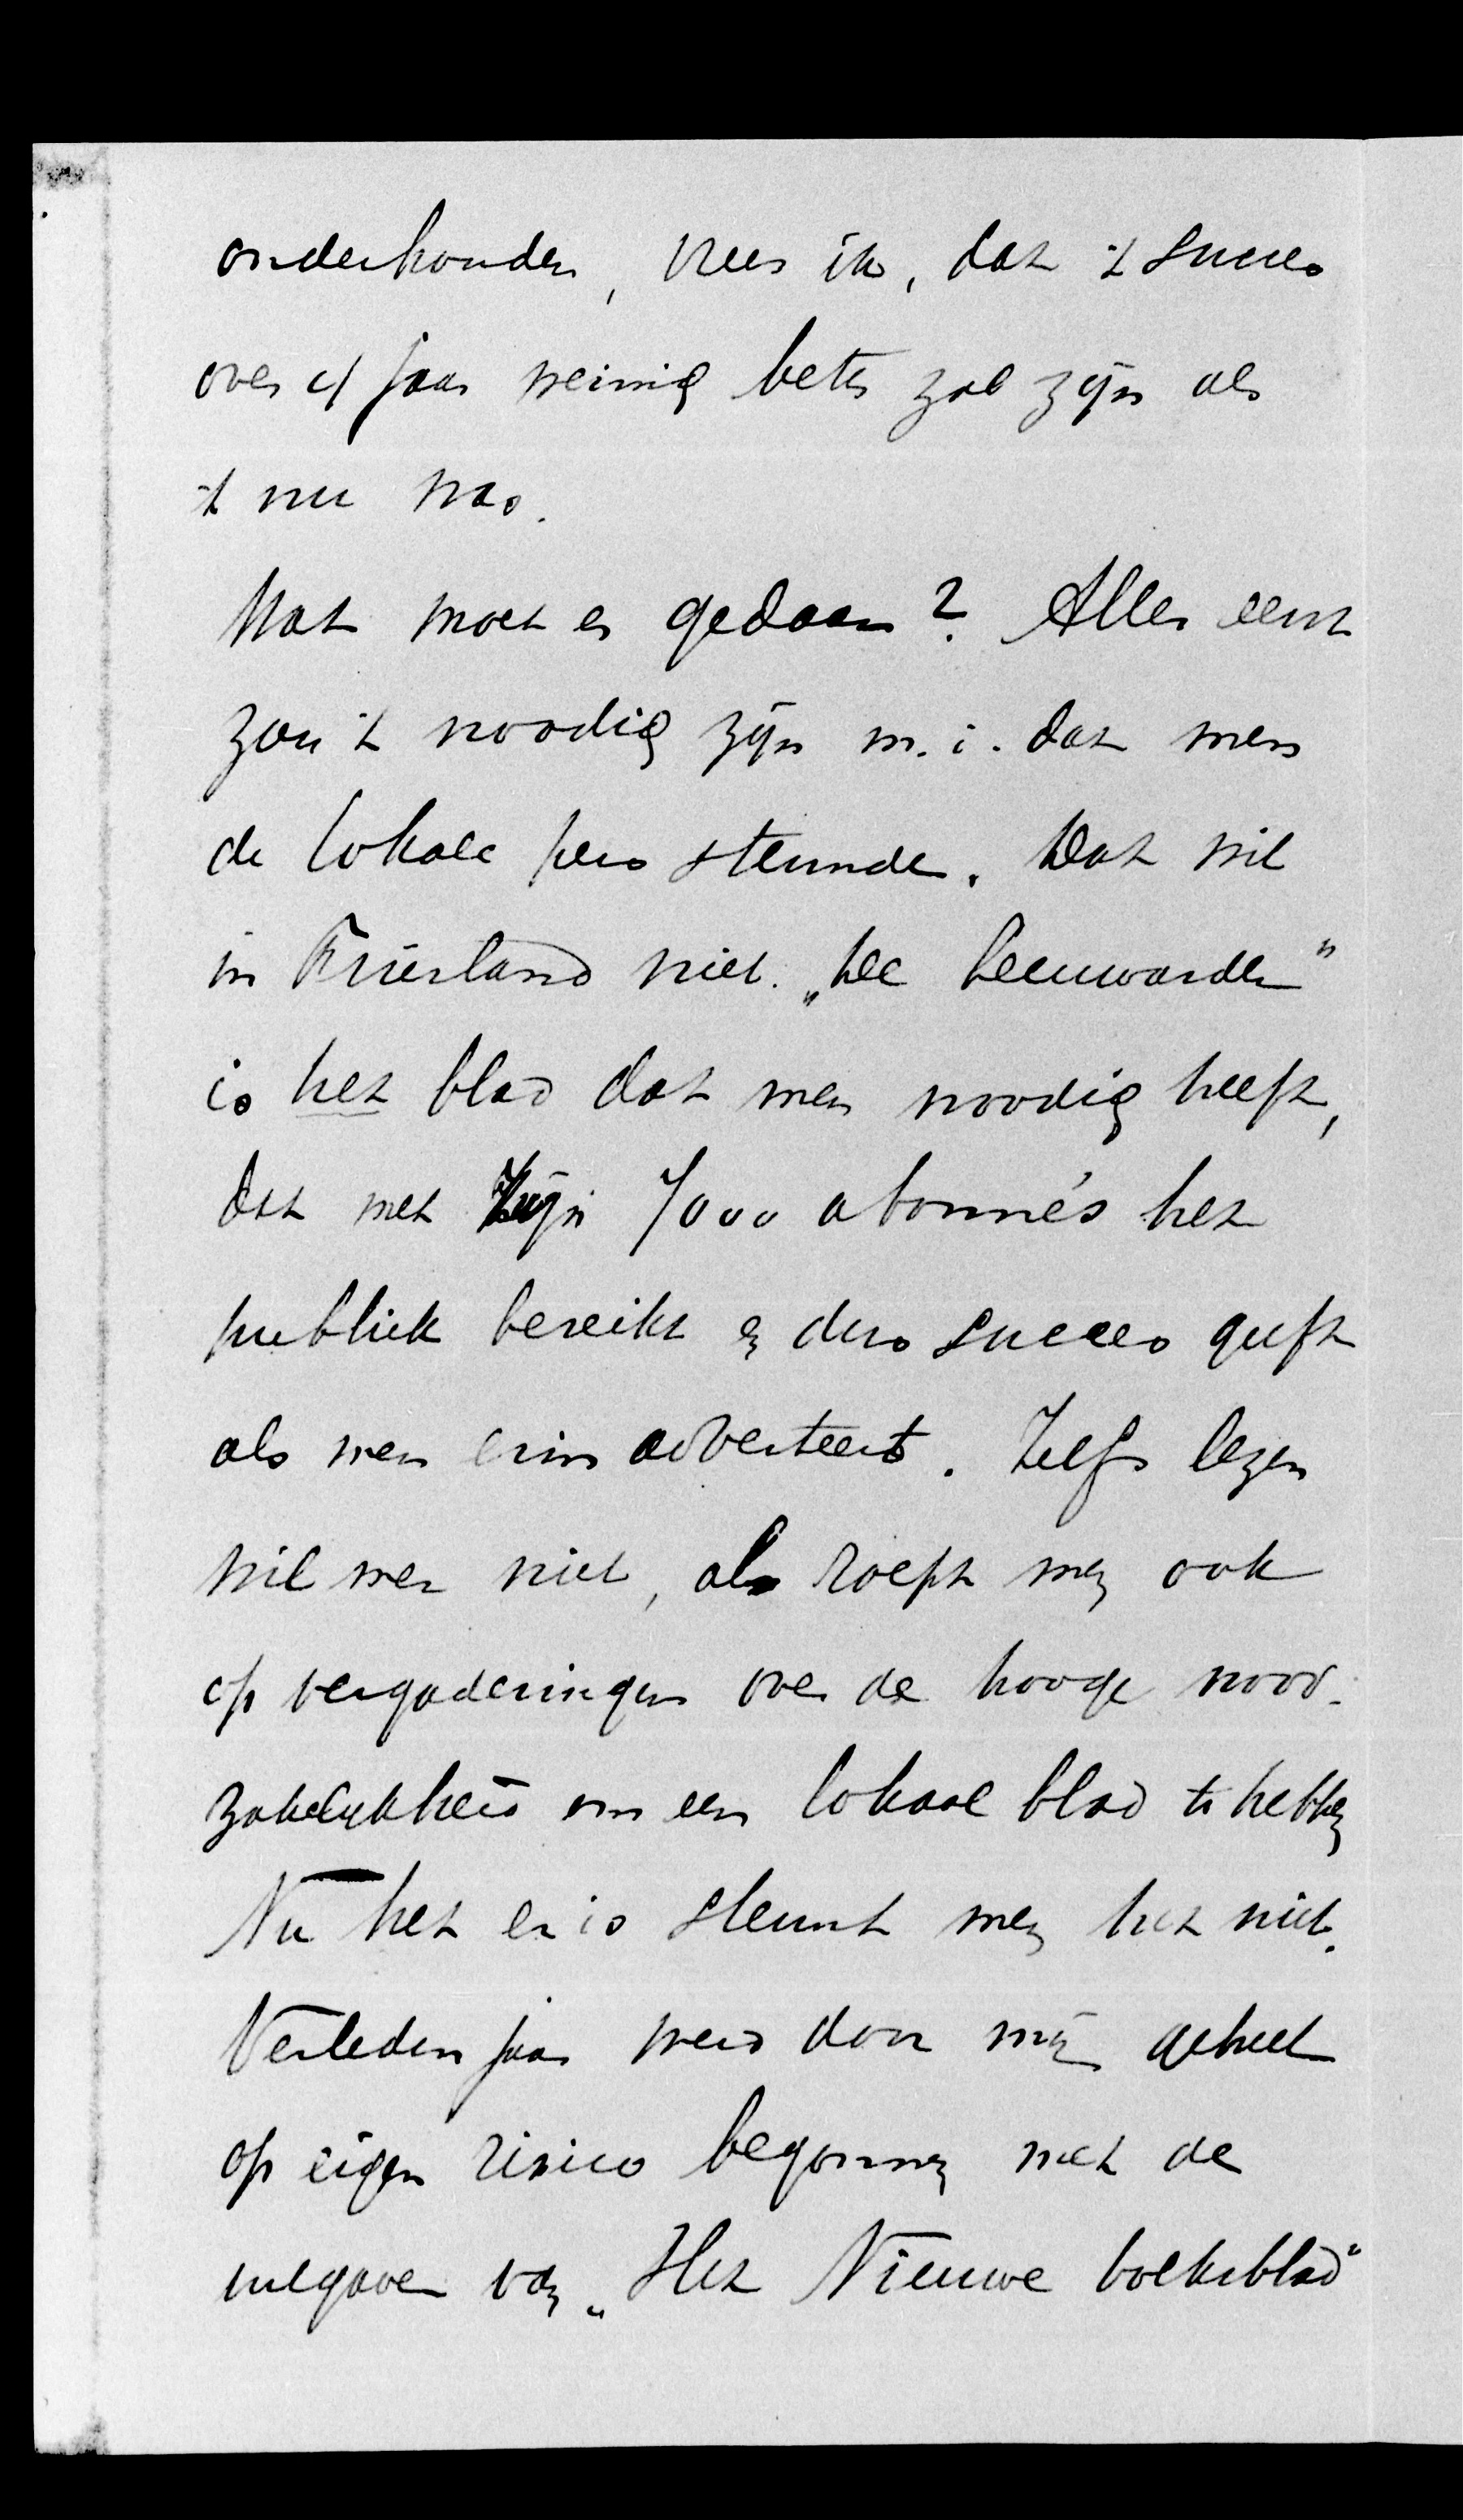 onderhouden, vrees ik, dat 't succes
over 4 jaar weinig beter zal zijn als
't nu was.
Wat moet er gedaan? Aller eerst
zou 't noodig zijn m.i. dat men
de lokale pers steunde. Dat wil
in Friesland niet. „De Leeuwarder"
is het blad dat men noodig heeft,
dat met zijn 7000 abonné's het
publiek bereikt en dus succes geeft
als men erin adverteert. Zelfs lezen
wil men niet, al roept men ook
op vergaderingen over de hooge nood-
zakelijkheid om een lokaal blad te hebben
Nu het er is steunt men het niet.
Verleden jaar werd door mij geheel
op eigen risico begonnen met de
uitgave van „Het Nieuwe Volksblad"